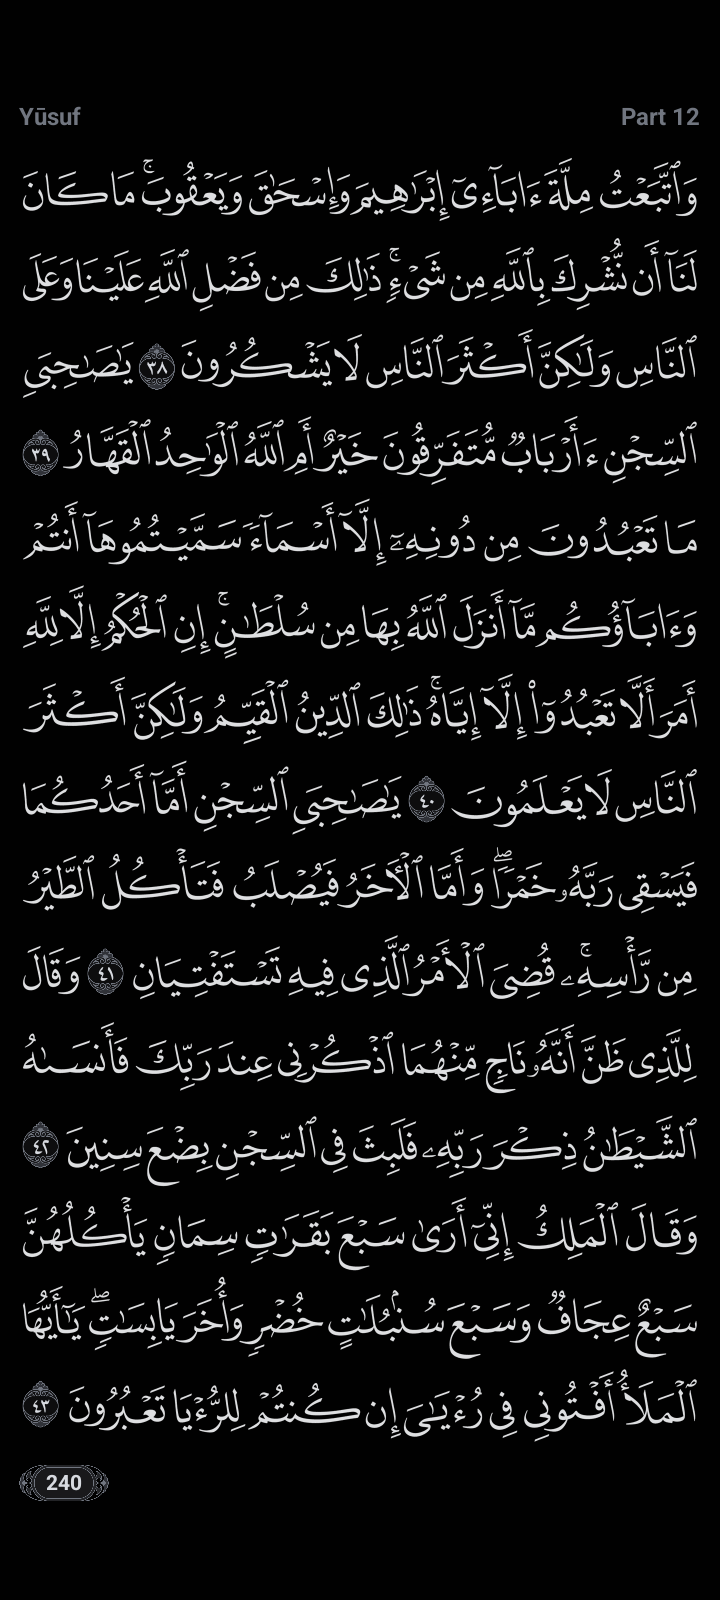 Yūsuf
Part 12
وَٱتَّبَعْتُ مِلَّةَ ءَابَآءِىٓ إِبْرَٰهِيمَ وَإِسْحَٰقَ وَيَعْقُوبَ ۚ مَا كَانَ
لَنَآ أَن نُّشْرِكَ بِٱللَّهِ مِن شَىْءٍ ۚ ذَٰلِكَ مِن فَضْلِ ٱللَّهِ عَلَيْنَا وَعَلَى
ٱلنَّاسِ وَلَٰكِنَّ أَكْثَرَ ٱلنَّاسِ لَا يَشْكُرُونَ ٣٨ يَٰصَٰحِبَىِ
ٱلسِّجْنِ ءَأَرْبَابٌ مُّتَفَرِّقُونَ خَيْرٌ أَمِ ٱللَّهُ ٱلْوَٰحِدُ ٱلْقَهَّارُ ٣٩
مَا تَعْبُدُونَ مِن دُونِهِۦٓ إِلَّآ أَسْمَآءً سَمَّيْتُمُوهَآ أَنتُمْ
وَءَابَآؤُكُم مَّآ أَنزَلَ ٱللَّهُ بِهَا مِن سُلْطَٰنٍ ۚ إِنِ ٱلْحُكْمُ إِلَّا لِلَّهِ
أَمَرَ أَلَّا تَعْبُدُوٓا۟ إِلَّآ إِيَّاهُ ۚ ذَٰلِكَ ٱلدِّينُ ٱلْقَيِّمُ وَلَٰكِنَّ أَكْثَرَ
ٱلنَّاسِ لَا يَعْلَمُونَ ٤٠ يَٰصَٰحِبَىِ ٱلسِّجْنِ أَمَّآ أَحَدُكُمَا
فَيَسْقِى رَبَّهُۥ خَمْرًا ۖ وَأَمَّا ٱلْءَاخَرُ فَيُصْلَبُ فَتَأْكُلُ ٱلطَّيْرُ
مِن رَّأْسِهِۦ ۚ قُضِىَ ٱلْأَمْرُ ٱلَّذِى فِيهِ تَسْتَفْتِيَانِ ٤١ وَقَالَ
لِلَّذِى ظَنَّ أَنَّهُۥ نَاجٍ مِّنْهُمَا ٱذْكُرْنِى عِندَ رَبِّكَ فَأَنسَىٰهُ
ٱلشَّيْطَٰنُ ذِكْرَ رَبِّهِۦ فَلَبِثَ فِى ٱلسِّجْنِ بِضْعَ سِنِينَ ٤٢
وَقَالَ ٱلْمَلِكُ إِنِّىٓ أَرَىٰ سَبْعَ بَقَرَٰتٍ سِمَانٍ يَأْكُلُهُنَّ
سَبْعٌ عِجَافٌ وَسَبْعَ سُنۢبُلَٰتٍ خُضْرٍ وَأُخَرَ يَابِسَٰتٍ ۖ يَٰٓأَيُّهَا
ٱلْمَلَأُ أَفْتُونِى فِى رُءْيَٰىَ إِن كُنتُمْ لِلرُّءْيَا تَعْبُرُونَ ٤٣
240